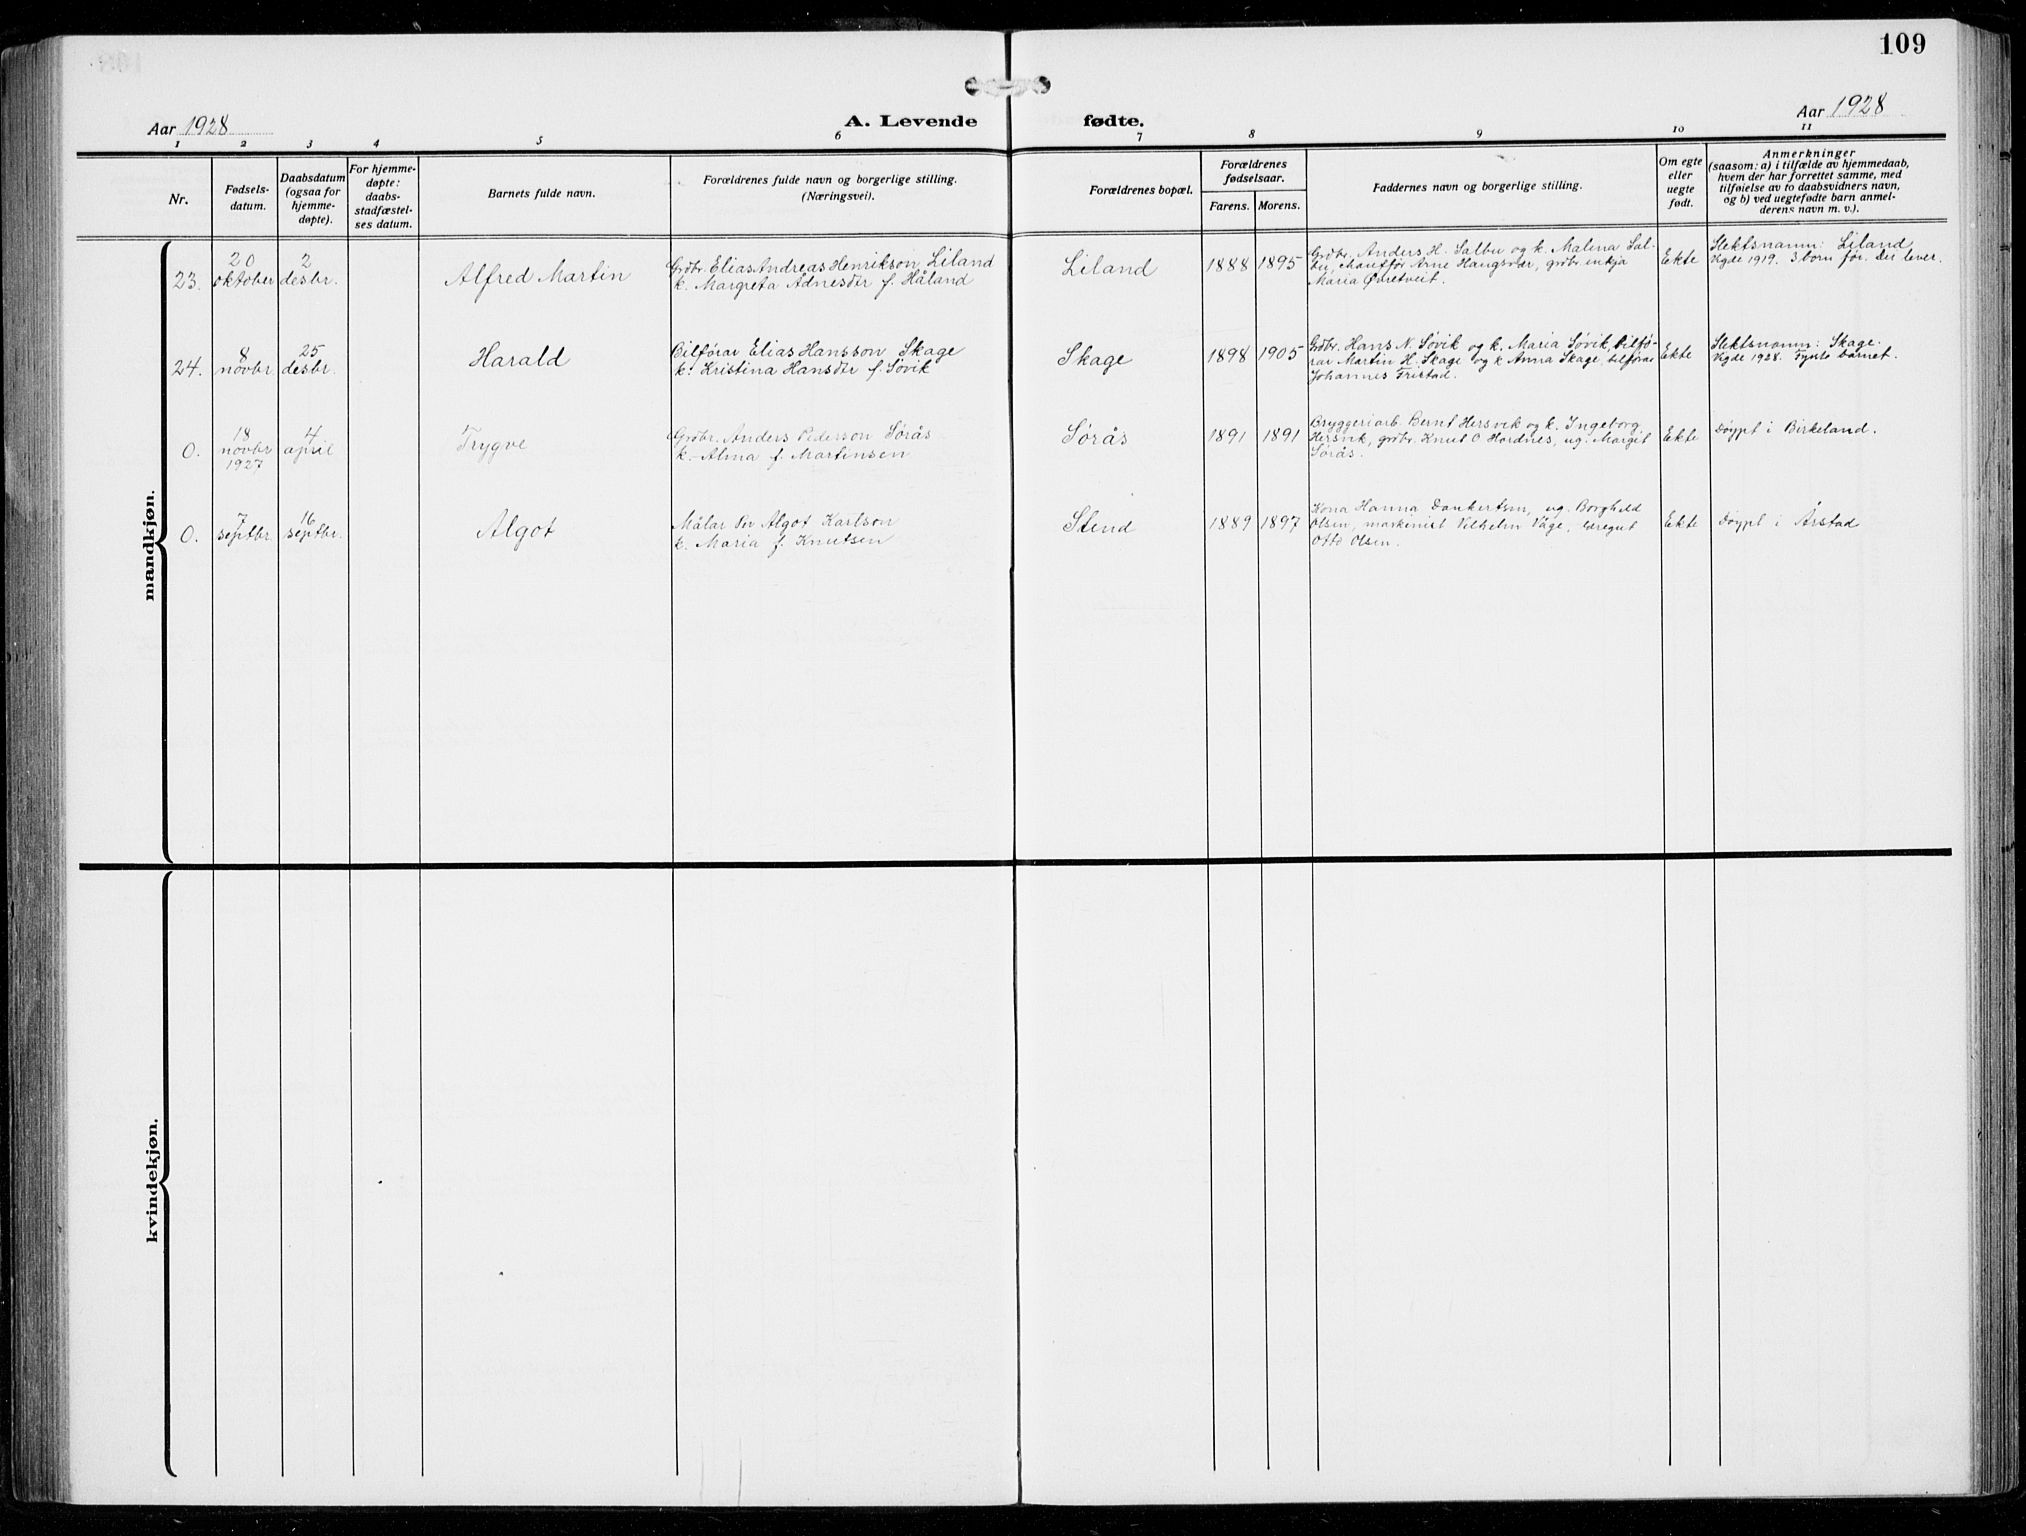 109
Aar 1928
A. Levende fødte.
Aar 1928
1 2 3 4 5 6 7 8 9 10 11
Nr.
Fødsels-
datum.
Daabsdatum
(ogsaa for
hjemme-
døpte).
For hjemme-
døpte:
daabs-
stadfæstel-
ses datum.
Barnets fulde navn.
Forældrenes fulde navn og borgerlige stilling.
(Næringsvei).
Forældrenes bopæl.
Forældrenes
fødselsaar.
Farens. Morens.
Faddernes navn og borgerlige stilling.
Om egte
eller
uegte
født.
Anmerkninger
(saasom: a) i tilfælde av hjemmedaab,
hvem der har forrettet samme, med
tilføielse av to daabsvidners navn,
og b) ved uegtefødte barn anmel-
derens navn m. v.).
mandkjøn.
23.
20
oktober
2
desbr.
Alfred Martin
Grdbr. Elias Andreas Henrikson Liland
k. Margreta Adnesdtr f. Håland
Liland
1888 1895
Grdbr. Anders H. Salbu og k. Malena Sal-
bu, chauffør Arne Haugsvær, grdbr enkja
Maria Øvretveit.
Ekte
Slektsnamn: Liland
Vigde 1919. 3 born før. Dei lever.
24.
8
novbr
25
desbr.
Harald
Bilførar Elias Hansson Skage
k. Kristina Hansdtr f. Søvik
Skage
1898 1905
Grdbr. Hans N. Søvik og k. Maria Søvik, bilfø-
rar Martin H. Skage og k Anna Skage, bilførar
Johannes Tristad.
Ekte
Slektsnamn: Skage.
Vigde 1928. Fyrste barnet.
0.
18
novbr
1927
4
april
Trygve
Grdbr. Anders Pederson Sørås
k. Alma f. Martinsen
Sørås
1891 1891
Bryggeriarb. Bernt Hersvik og k. Ingeborg
Hersvik, grdbr. Knut O Hordnes, ug. Margit
Sørås.
Ekte
Døypt i Birkeland.
0.
7
septbr.
16
septbr.
Algot
Målar Per Algot Karlson
k. Maria f. Knutsen
Stend
1889 1897
Kona Hanna Dankertsen, ug. Borghild
Olsen, maskenist Vilhelm Våge,
Otto Olsen.
Ekte
Døypt i Årstad
kvindekjøn.